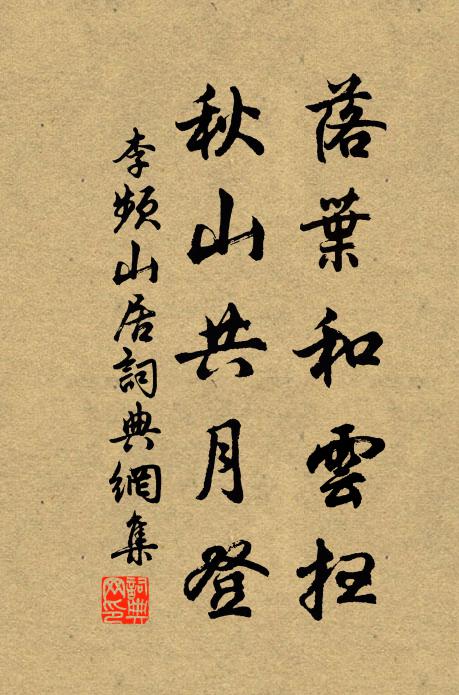 落葉和雲扫
秋山共月登
李頻山居詞典網集
詞典网印